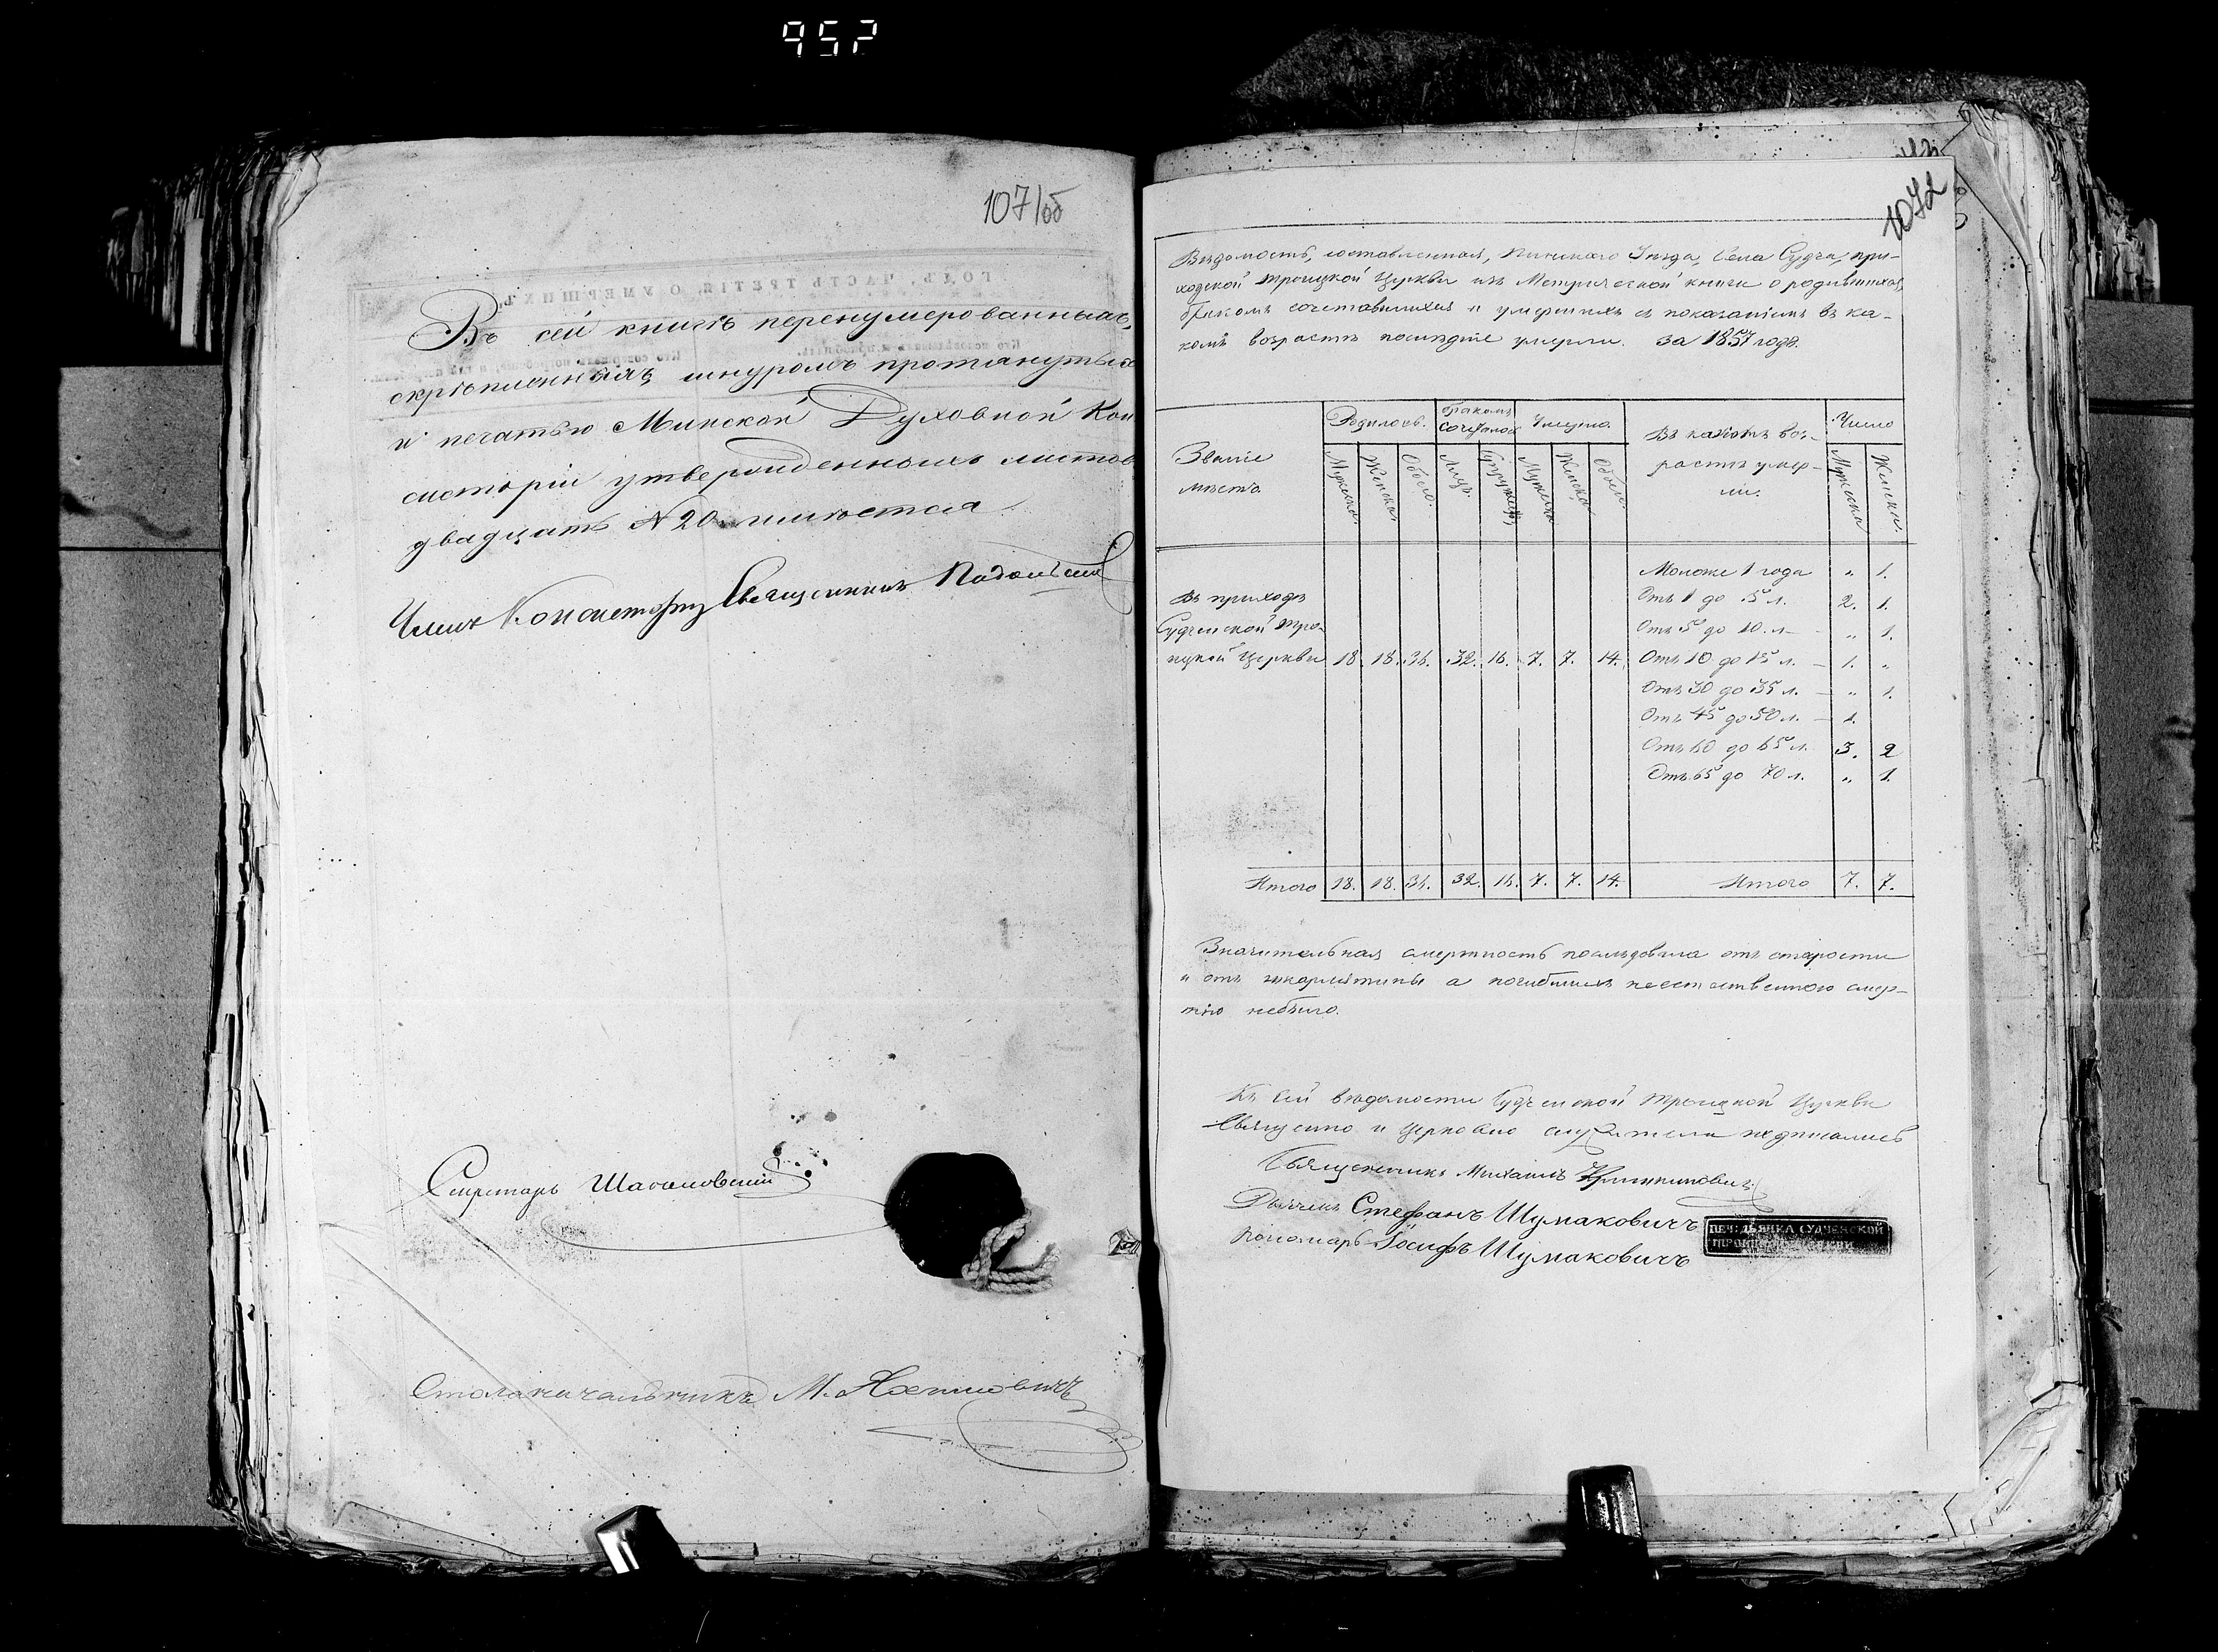 952
107/об
ГОДЪ, ЧАСТЬ ТРЕТІЯ, О УМЕРШИХЪ,
Въ сей книгѣ перенумерованныхъ,
скрѣпленныхъ шнуромъ протянутыхъ
и печатью Минской Духовной Кон
систоріи утвержденныхъ листовъ
двадцать N 20 имѣется
Членъ Консисторіи Священникъ
Секретарь
Столоначальникъ М.
1072
Вѣдомость, составленная, Пинскаго Уѣзда, Села Судча, при-
ходской Троицкой Церкви изъ Метрической книги о родившихся,
бракомъ сочетавшихся и умершихъ съ показаніемъ въ ка-
комъ возрастѣ послѣдніе умерли. За 1857 годъ.
Званіе мѣста.
Родилось. Бракомъ сочеталось Умерло.
Въ какомъ воз-
растѣ умер-
ли.
Число
Мужеска. Женска. Обоего. Лицъ. Супружествъ Мужеска Женска Обоего Мужеска Женска.
Моложе 1 года „ 1.
Въ приходѣ Отъ 1 до 5 л. 2. 1.
Судченской Тро- Отъ 5 до 10. л. „ 1.
ицкой Церкви 18. 18. 36. 32. 16. 7. 7. 14. Отъ 10 до 15 л. 1. „
Отъ 30 до 35 л. „ 1.
Отъ 45 до 50 л. 1.
Отъ 60 до 65 л. 3. 2
Отъ 65 до 70 л. „ 1.
Итого 18. 18. 36. 32. 16. 7. 7. 14. Итого 7. 7.
Значительная смертность послѣдовала отъ старости
и отъ шкарлятины а погибшихъ неестественною смер-
тію небыло.
Къ сей вѣдомости Судченской Троицкой Церкви
Священно и Церковно служители подписались
Священникъ Михаилъ
Дьячекъ Стефанъ Шумаковичъ
Пономарь Іосифъ Шумаковичъ
СУДЧЕНСКОЙ